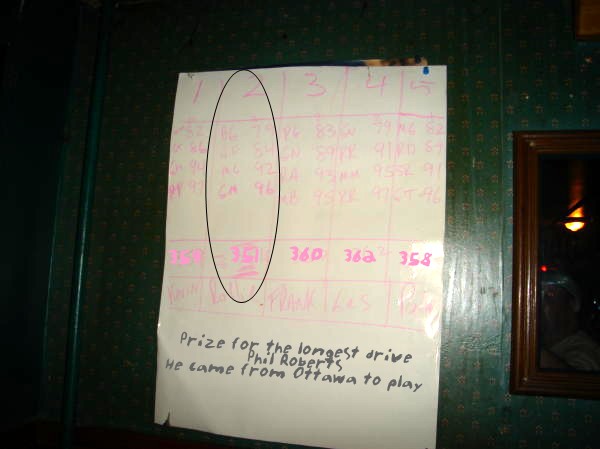 1 2 3 4 5
82 AG 74 RG 83 GN 79 MG 82
86 84 GN 89 RR 91 RD 89
MG 92 RA 93 MM 95 SR 91
GM 96 95 RR 97 GT 96
351 360 362 358
Kevin FRANK Les
Prize for the longest drive
Phil Roberts
He came from Ottawa to play